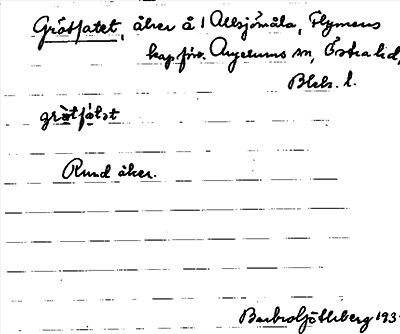 Grötfatet, åker å 1 Allsjömåla, Flymens
kap.förs. Augerums sn, Östra hd,
Blek. l.
grö̀tfá̱tət
Rund åker.
Barbro Götlsberg 193